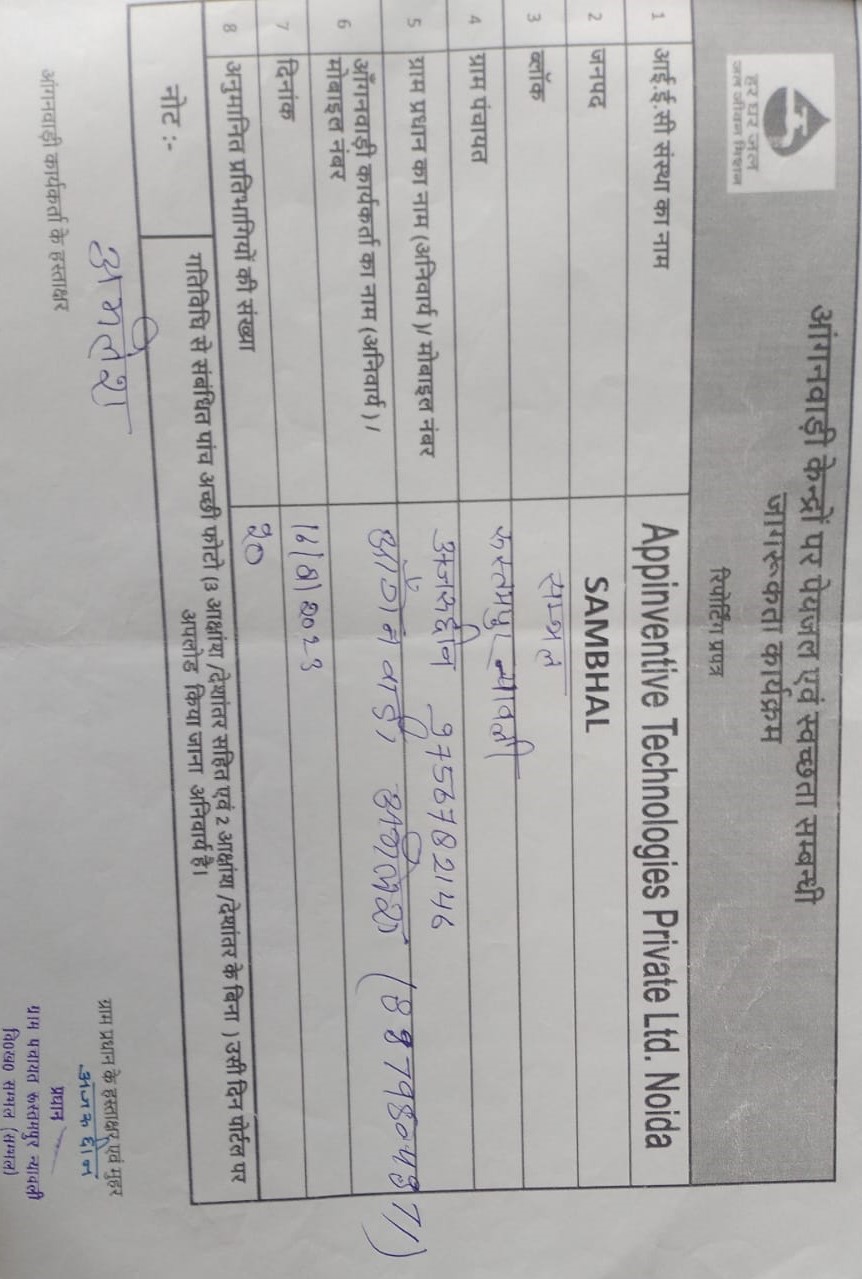 हर घर जल
जल जीवन मिशन
आंगनवाड़ी केन्द्रों पर पेयजल एवं स्वच्छता सम्बन्धी
जागरूकता कार्यक्रम
रिपोर्टिंग प्रपत्र
1 आई.ई.सी संस्था का नाम Appinventive Technologies Private Ltd. Noida
2 जनपद SAMBHAL
3 ब्लॉक सम्भल
4 ग्राम पंचायत रूस्तमपुर न्यावली
5 ग्राम प्रधान का नाम (अनिवार्य )/ मोबाइल नंबर 9756782146
6 आँगनवाड़ी कार्यकर्ता का नाम (अनिवार्य ) /
मोबाइल नंबर आंगनवाड़ी
7 दिनांक
8 अनुमानित प्रतिभागियों की संख्या 20
नोट :- गतिविधि से संबंधित पांच अच्छी फोटो (3 आक्षांय /देयांतर सहित एवं 2 आक्षांय /देयांतर के बिना ) उसी दिन पोर्टल पर
अपलोड किया जाना अनिवार्य है।
आंगनवाड़ी कार्यकर्ता के हस्ताक्षर
ग्राम प्रधान के हस्ताक्षर एवं मुहर
प्रधान
ग्राम पंचायत रूस्तमपुर न्यावली
वि0ख0 सम्भल (सम्भल)